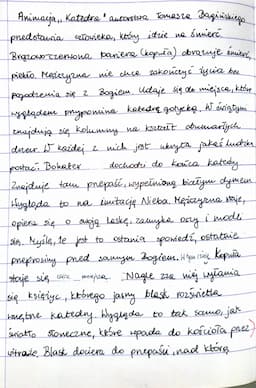 Animacja „Katedra" autorstwa Tomasza Bagińskiego
przedstawia człowieka, który idzie na śmierć.
Brązowo czerwona bariera (kopuła) obrazuje śmierć,
piekło. Mężczyzna nie chce zakończyć życia bez
pogodzenia się z Bogiem. Udaje się do miejsca, które
wyglądem przypomina katedrę gotycką. W świątyni
znajdują się kolumny na kształt obumarłych
drzew. W każdej z nich jest ukryta jakaś ludzka
postać. Bohater dochodzi do końca katedry
Znajduje tam przepaść, wypełnioną białym dymem
Wygląda to na imitację Nieba. Mężczyzna staje,
opiera się o swoją laskę, zamyka oczy i modli
się. Myślę, że jest to ostatnia spowiedź, ostatnie
przeprosiny przed samym Bogiem. kopuła
staje się Nagle zza niej wyłania
się księżyc, którego jasny blask rozświetla
wnętrze katedry. Wygląda to tak samo, jak
światło słoneczne, które wpada do kościoła przez
witraże. Blask dociera do przepaści, nad którą